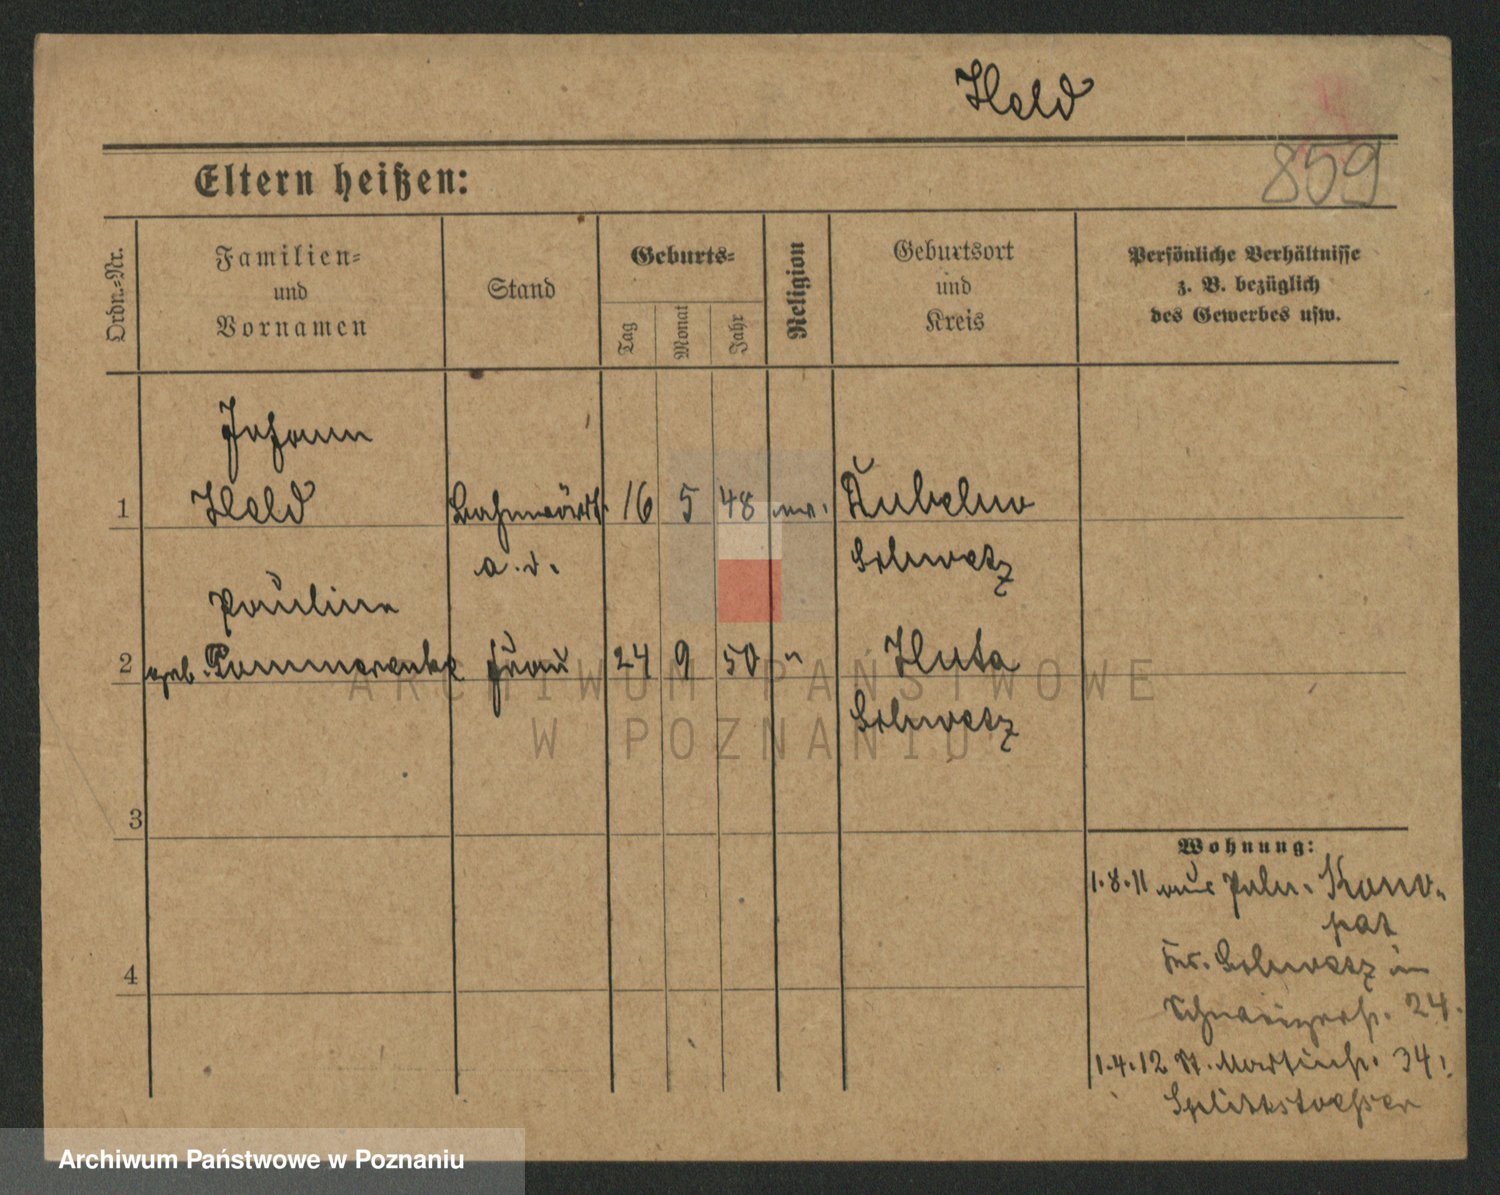 Held
859
Eltern heißen:
Ordn.=Nr.
Familien=
und
Vornamen
Stand
Geburts=
Tag
Monat
Jahr
Religion
Geburtsort
und
Kreis
Persönliche Verhältnisse
z. B. bezüglich
des Gewerbes usw.
Johann
1 Held Bahnwärt. 16 5 48 ev. Dubelno
a. D. Schwetz
Pauline
2 geb. Pommerenke Frau 24 9 50 " Huta
Schwetz
3
4
Wohnung:
1.8.11 aus Poln. Kono-
pat
Kr. Schwetz in
34.
1.4.12 St. Martinstr. 34,
Splittstoesser
ARCHIWUM PAŃSTWOWE
W POZNANIU
Archiwum Państwowe w Poznaniu